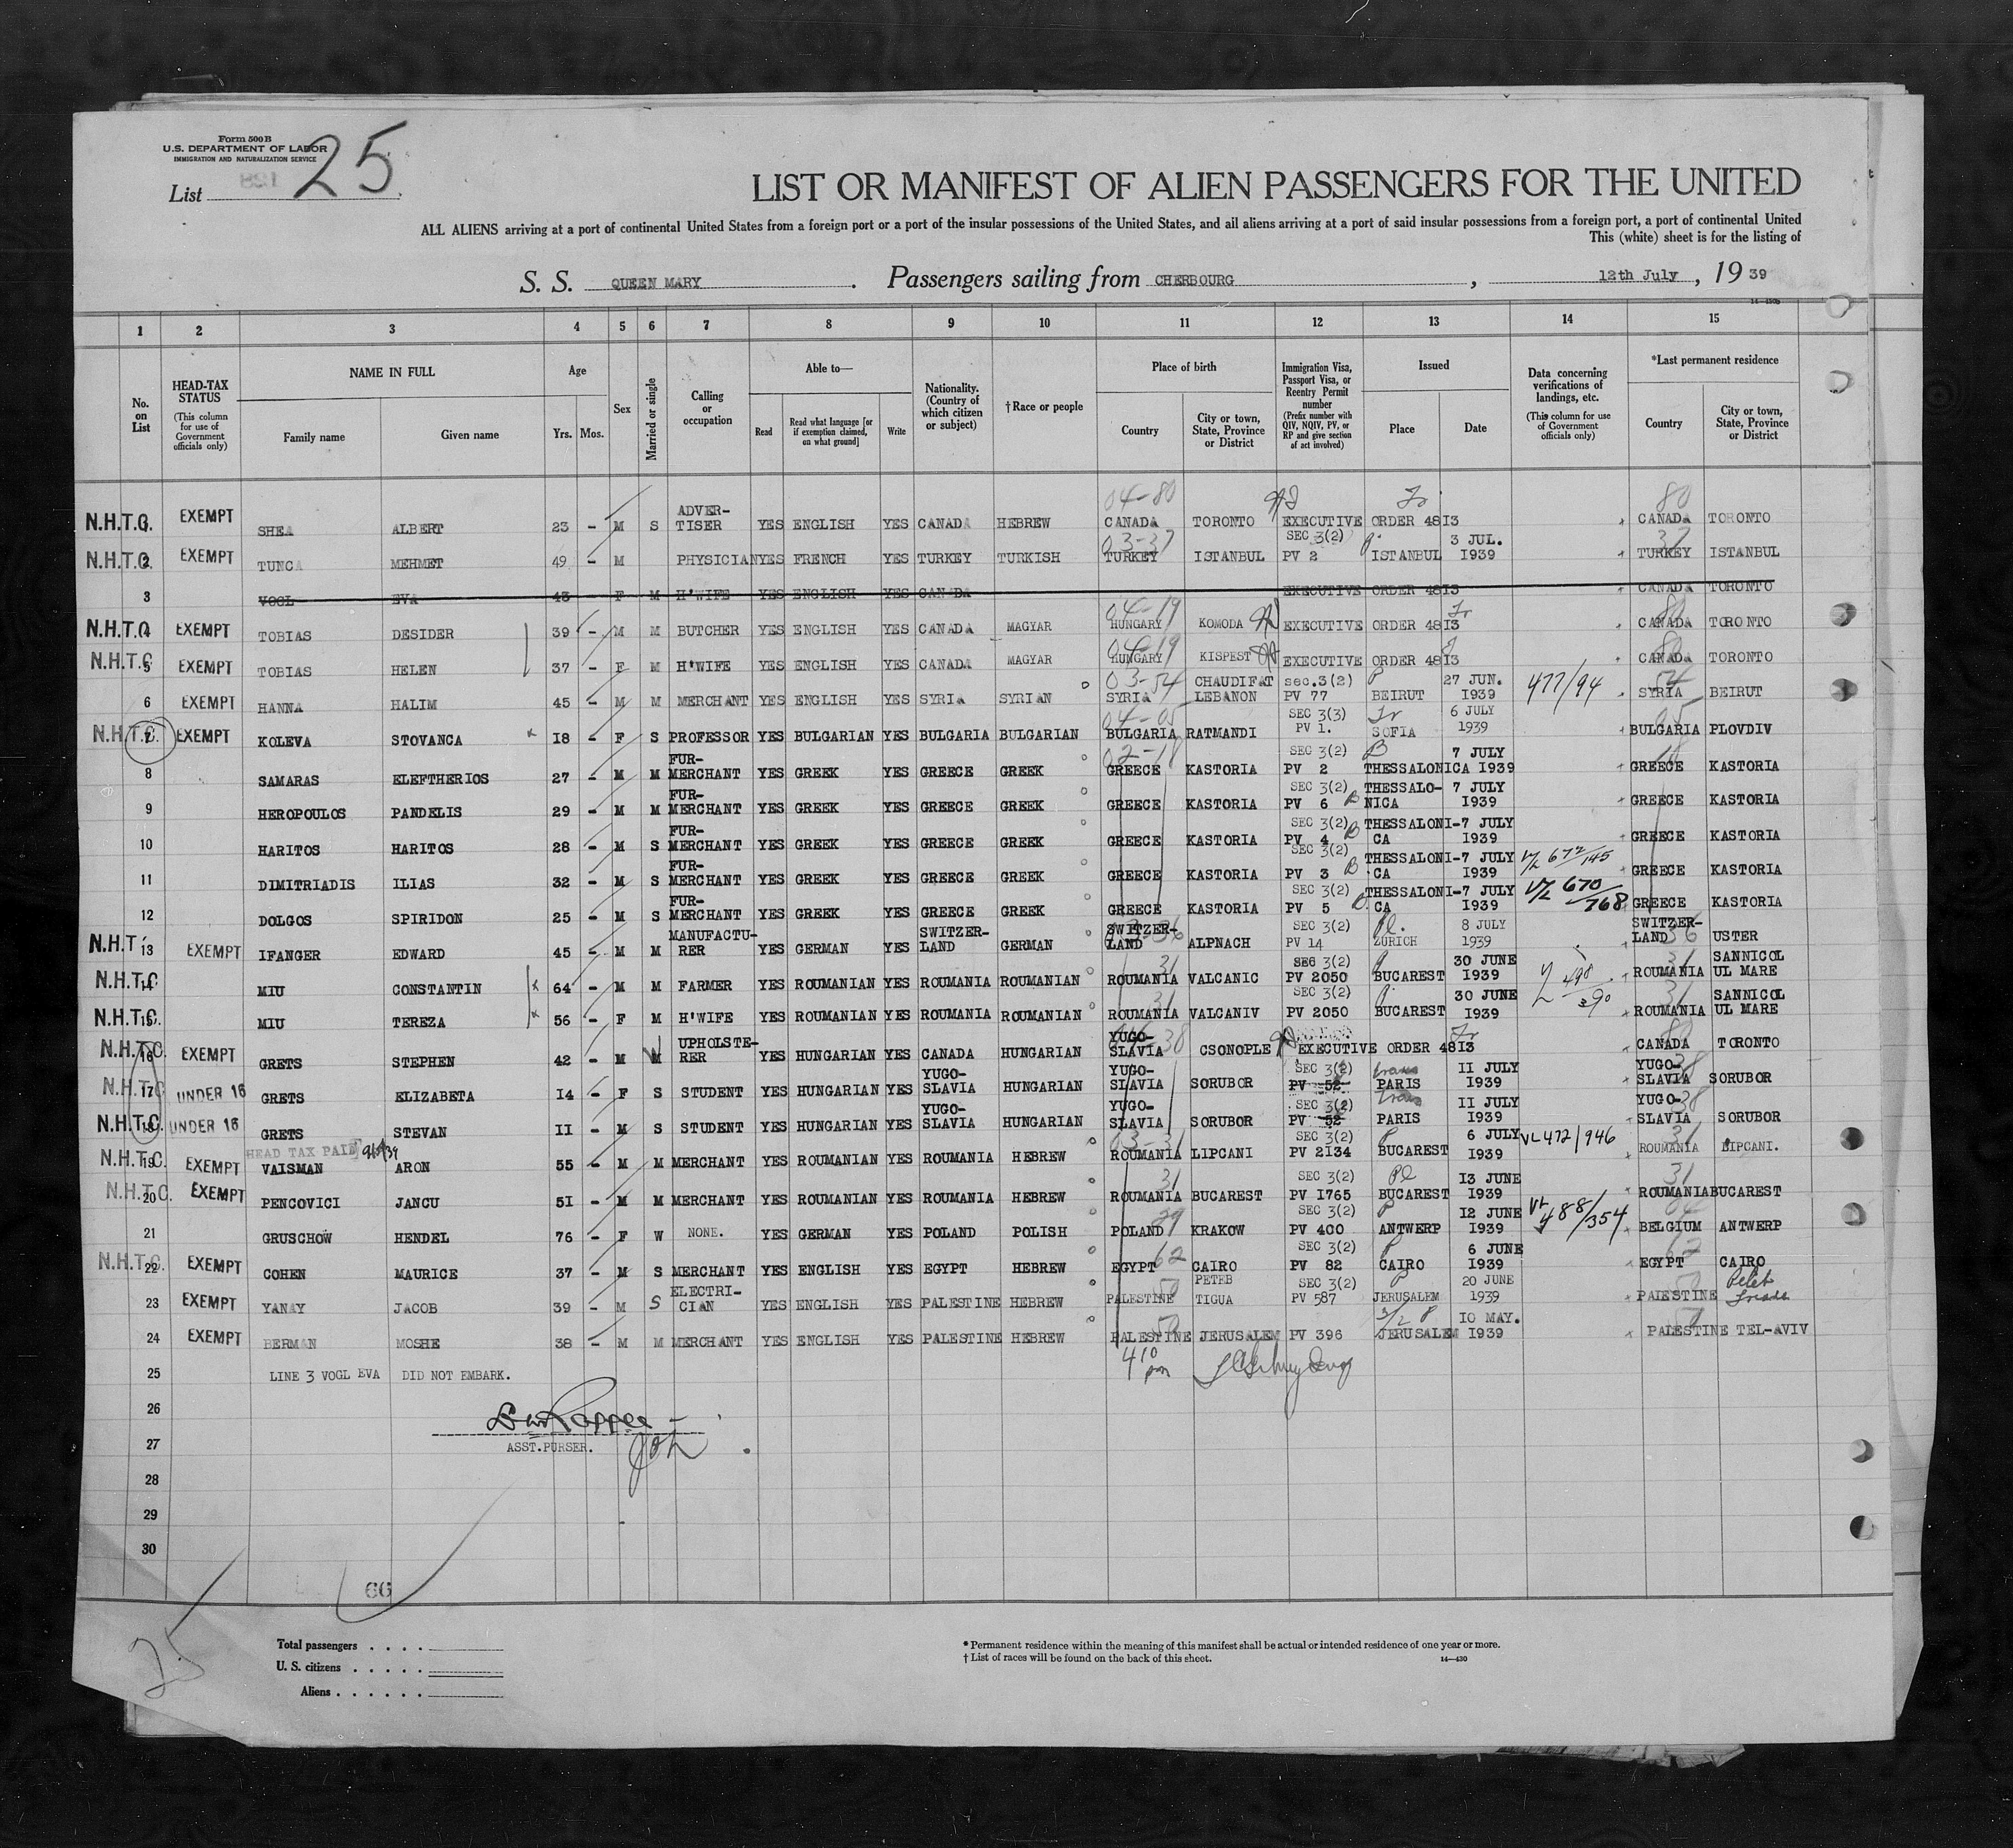 Form 500 B
U.S. DEPARTMENT OF LABOR
IMMIGRATION AND NATURALIZATION SERVICE
List 25
LIST OR MANIFEST OF ALIEN PASSENGERS FOR THE UNITED
ALL ALIENS arriving at a port of continental United States from a foreign port or a port of the insular possessions of the United States, and all aliens arriving at a port of said insular possessions from a foreign port, a port of continental United
This (white) sheet is for the listing of
S. S. QUEEN MARY . Passengers sailing from CHERBOURG , 12th July , 19 39
1 2 3 4 5 6 7 8 9 10 11 12 13 14 15
No. on List
HEAD-TAX STATUS (This column for use of Government officials only)
NAME IN FULL
Family name
Given name
Age
Yrs.
Mos.
Sex
Married or single
Calling or occupation
Able to—
Read
Read what language [or if exemption claimed, on what ground]
Write
Nationality. (Country of which citizen or subject)
† Race or people
Place of birth
Country
City or town, State, Province or District
Immigration Visa, Passport Visa, or Reentry Permit number (Prefix number with QIV, NQIV, PV, or RP and give section of act involved)
Issued
Place
Date
Data concerning verifications of landings, etc. (This column for use of Government officials only)
*Last permanent residence
Country
City or town, State, Province or District
N.H.T.C. EXEMPT SHEA ALBERT 23 - M S ADVER- TISER YES ENGLISH YES CANADA HEBREW 04-80 CANADA TORONTO EXECUTIVE ORDER 4813 80 CANADA TORONTO
N.H.T.C. 2 EXEMPT TUNCA MEHMET 49 - M PHYSICIAN YES FRENCH YES TURKEY TURKISH 03-37 TURKEY ISTANBUL SEC 3(2) PV 2 ISTANBUL 3 JUL. 1939 37 TURKEY ISTANBUL
3 VOGL EVA 43 - F M H'WIFE YES ENGLISH YES CANADA EXECUTIVE ORDER 4813 CANADA TORONTO
N.H.T.C. 4 EXEMPT TOBIAS DESIDER 39 - M M BUTCHER YES ENGLISH YES CANADA MAGYAR 04-19 HUNGARY KOMODA EXECUTIVE ORDER 4813 80 CANADA TORONTO
N.H.T.C. 5 EXEMPT TOBIAS HELEN 37 - F M H'WIFE YES ENGLISH YES CANADA MAGYAR 04-19 HUNGARY KISPEST EXECUTIVE ORDER 4813 80 CANADA TORONTO
6 EXEMPT HANNA HALIM 45 - M M MERCHANT YES ENGLISH YES SYRIA SYRIAN 03-54 SYRIA CHAUDIFAT LEBANON sec.3(2) PV 77 BEIRUT 27 JUN. 1939 477/94 54 SYRIA BEIRUT
N.H.T.C. 7 EXEMPT KOLEVA STOVANCA 18 - F S PROFESSOR YES BULGARIAN YES BULGARIA BULGARIAN 04-05 BULGARIA RATMANDI SEC 3(3) PV 1. SOFIA 6 JULY 1939 05 BULGARIA PLOVDIV
8 SAMARAS ELEFTHERIOS 27 - M M FUR- MERCHANT YES GREEK YES GREECE GREEK 02-18 GREECE KASTORIA SEC 3(2) PV 2 THESSALONICA 7 JULY 1939 18 GREECE KASTORIA
9 HEROPOULOS PANDELIS 29 - M M FUR- MERCHANT YES GREEK YES GREECE GREEK GREECE KASTORIA SEC 3(2) PV 6 THESSALO- NICA 7 JULY 1939 GREECE KASTORIA
10 HARITOS HARITOS 28 - M S FUR- MERCHANT YES GREEK YES GREECE GREEK GREECE KASTORIA SEC 3(2) PV 4 THESSALONI- CA 7 JULY 1939 GREECE KASTORIA
11 DIMITRIADIS ILIAS 32 - M S FUR- MERCHANT YES GREEK YES GREECE GREEK GREECE KASTORIA SEC 3(2) PV 3 THESSALONI- CA 7 JULY 1939 V/L 672/145 GREECE KASTORIA
12 DOLGOS SPIRIDON 25 - M S FUR- MERCHANT YES GREEK YES GREECE GREEK GREECE KASTORIA SEC 3(2) PV 5 THESSALONI- CA 7 JULY 1939 V/L 670/768 GREECE KASTORIA
N.H.T. 13 EXEMPT IFANGER EDWARD 45 - M M MANUFACTU- RER YES GERMAN YES SWITZER- LAND GERMAN SWITZER- LAND ALPNACH SEC 3(2) PV 14 ZURICH 8 JULY 1939 SWITZER- LAND 36 USTER
N.H.T.C. 14 MIU CONSTANTIN 64 - M M FARMER YES ROUMANIAN YES ROUMANIA ROUMANIAN 31 ROUMANIA VALCANIC SEC 3(2) PV 2050 BUCAREST 30 JUNE 1939 V/L 498/390 31 ROUMANIA SANNICOL UL MARE
N.H.T.C. 15 MIU TEREZA 56 - F M H'WIFE YES ROUMANIAN YES ROUMANIA ROUMANIAN 31 ROUMANIA VALCANIV SEC 3(2) PV 2050 BUCAREST 30 JUNE 1939 31 ROUMANIA SANNICOL UL MARE
N.H.T.C. 16 EXEMPT GRETS STEPHEN 42 - M M UPHOLSTE- RER YES HUNGARIAN YES CANADA HUNGARIAN YUGO- SLAVIA 04-38 CSONOPLE EXECUTIVE ORDER 4813 80 CANADA TORONTO
N.H.T.C. 17 UNDER 16 GRETS ELIZABETA 14 - F S STUDENT YES HUNGARIAN YES YUGO- SLAVIA HUNGARIAN YUGO- SLAVIA SORUBOR SEC 3(2) PV 52 trans PARIS 11 JULY 1939 YUGO- SLAVIA 38 SORUBOR
N.H.T.C. 18 UNDER 16 GRETS STEVAN 11 - M S STUDENT YES HUNGARIAN YES YUGO- SLAVIA HUNGARIAN YUGO- SLAVIA SORUBOR SEC 3(2) PV 52 trans PARIS 11 JULY 1939 YUGO- SLAVIA 38 SORUBOR
HEAD TAX PAID
N.H.T.C. 19 EXEMPT VAISMAN ARON 55 - M M MERCHANT YES ROUMANIAN YES ROUMANIA HEBREW 03-31 ROUMANIA LIPCANI SEC 3(2) PV 2134 BUCAREST 6 JULY 1939 VL 472/946 31 ROUMANIA LIPCANI.
N.H.T.C. 20 EXEMPT PENCOVICI JANCU 51 - M M MERCHANT YES ROUMANIAN YES ROUMANIA HEBREW 31 ROUMANIA BUCAREST SEC 3(2) PV 1765 BUCAREST 13 JUNE 1939 31 ROUMANIA BUCAREST
21 GRUSCHOW HENDEL 76 - F W NONE. YES GERMAN YES POLAND POLISH POLAND 29 KRAKOW SEC 3(2) PV 400 ANTWERP 12 JUNE 1939 VL 488/354 04 BELGIUM ANTWERP
N.H.T.C. 22 EXEMPT COHEN MAURICE 37 - M S MERCHANT YES ENGLISH YES EGYPT HEBREW EGYPT 62 CAIRO SEC 3(2) PV 82 CAIRO 6 JUNE 1939 62 EGYPT CAIRO
23 EXEMPT YANAY JACOB 39 - M S ELECTRI- CIAN YES ENGLISH YES PALESTINE HEBREW 50 PALESTINE PETEB TIGUA SEC 3(2) PV 587 JERUSALEM 20 JUNE 1939 50 PALESTINE
24 EXEMPT BERMAN MOSHE 38 - M M MERCHANT YES ENGLISH YES PALESTINE HEBREW 50 PALESTINE JERUSALEM PV 396 JERUSALEM 10 MAY. 1939 PALESTINE TEL-AVIV
25 LINE 3 VOGL EVA DID NOT EMBARK. 410 pm
26
27 ASST.PURSER.
28
29
30
66
25
Total passengers . . . .
U. S. citizens . . . . .
Aliens . . . . . .
* Permanent residence within the meaning of this manifest shall be actual or intended residence of one year or more.
† List of races will be found on the back of this sheet.
14—430